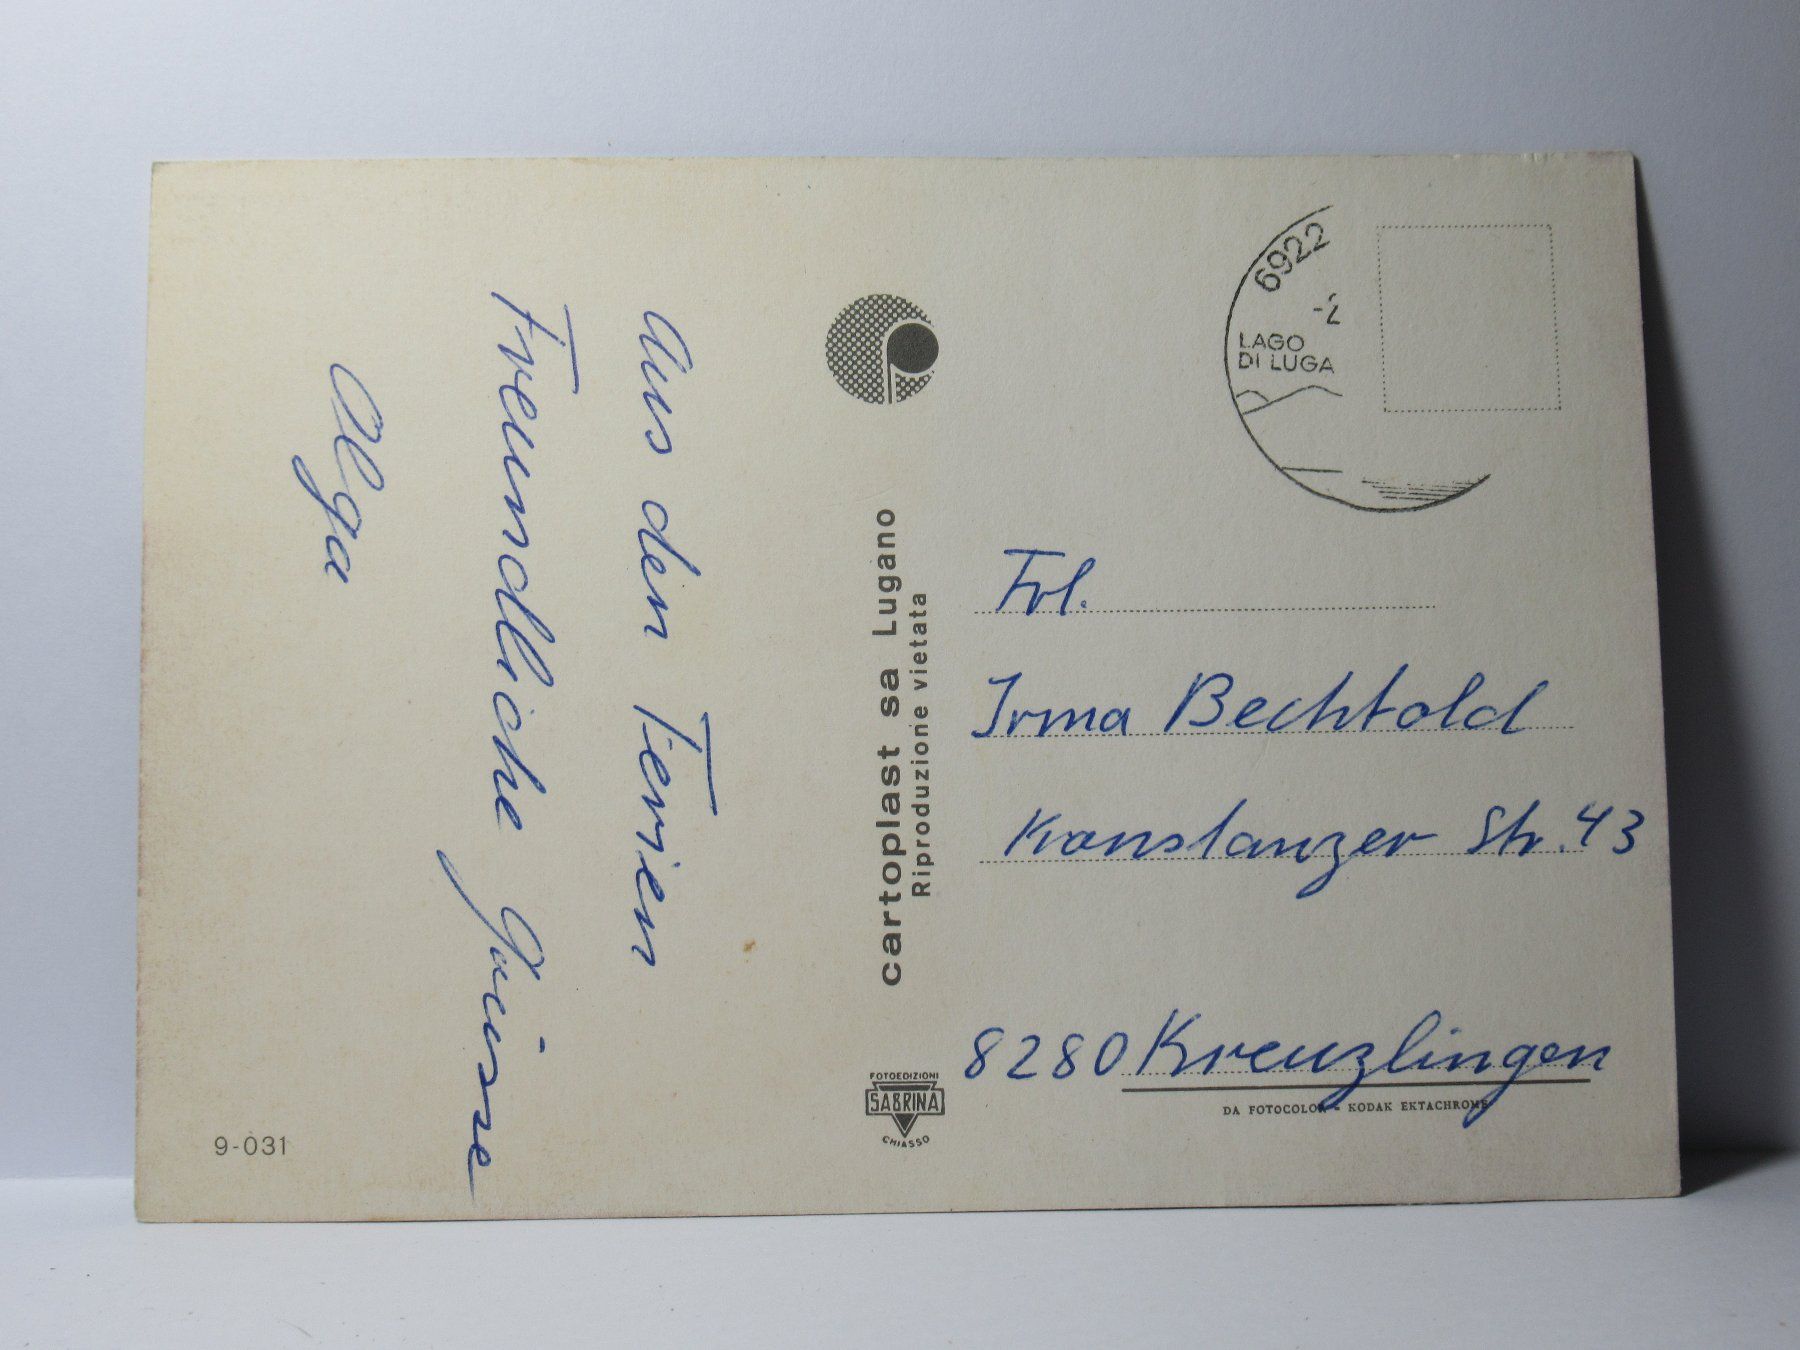 Aus den Ferien
Freundliche Grüsse
Olga
9-031
cartoplast sa Lugano
Riproduzione vietata
FOTOEDIZIONI
SABRINA
CHIASSO
6922
-2
LAGO
DI LUGA
Frl.
Irma Bechtold
Konstanzer Str. 43
8280 Kreuzlingen
DA FOTOCOLOR - KODAK EKTACHROME